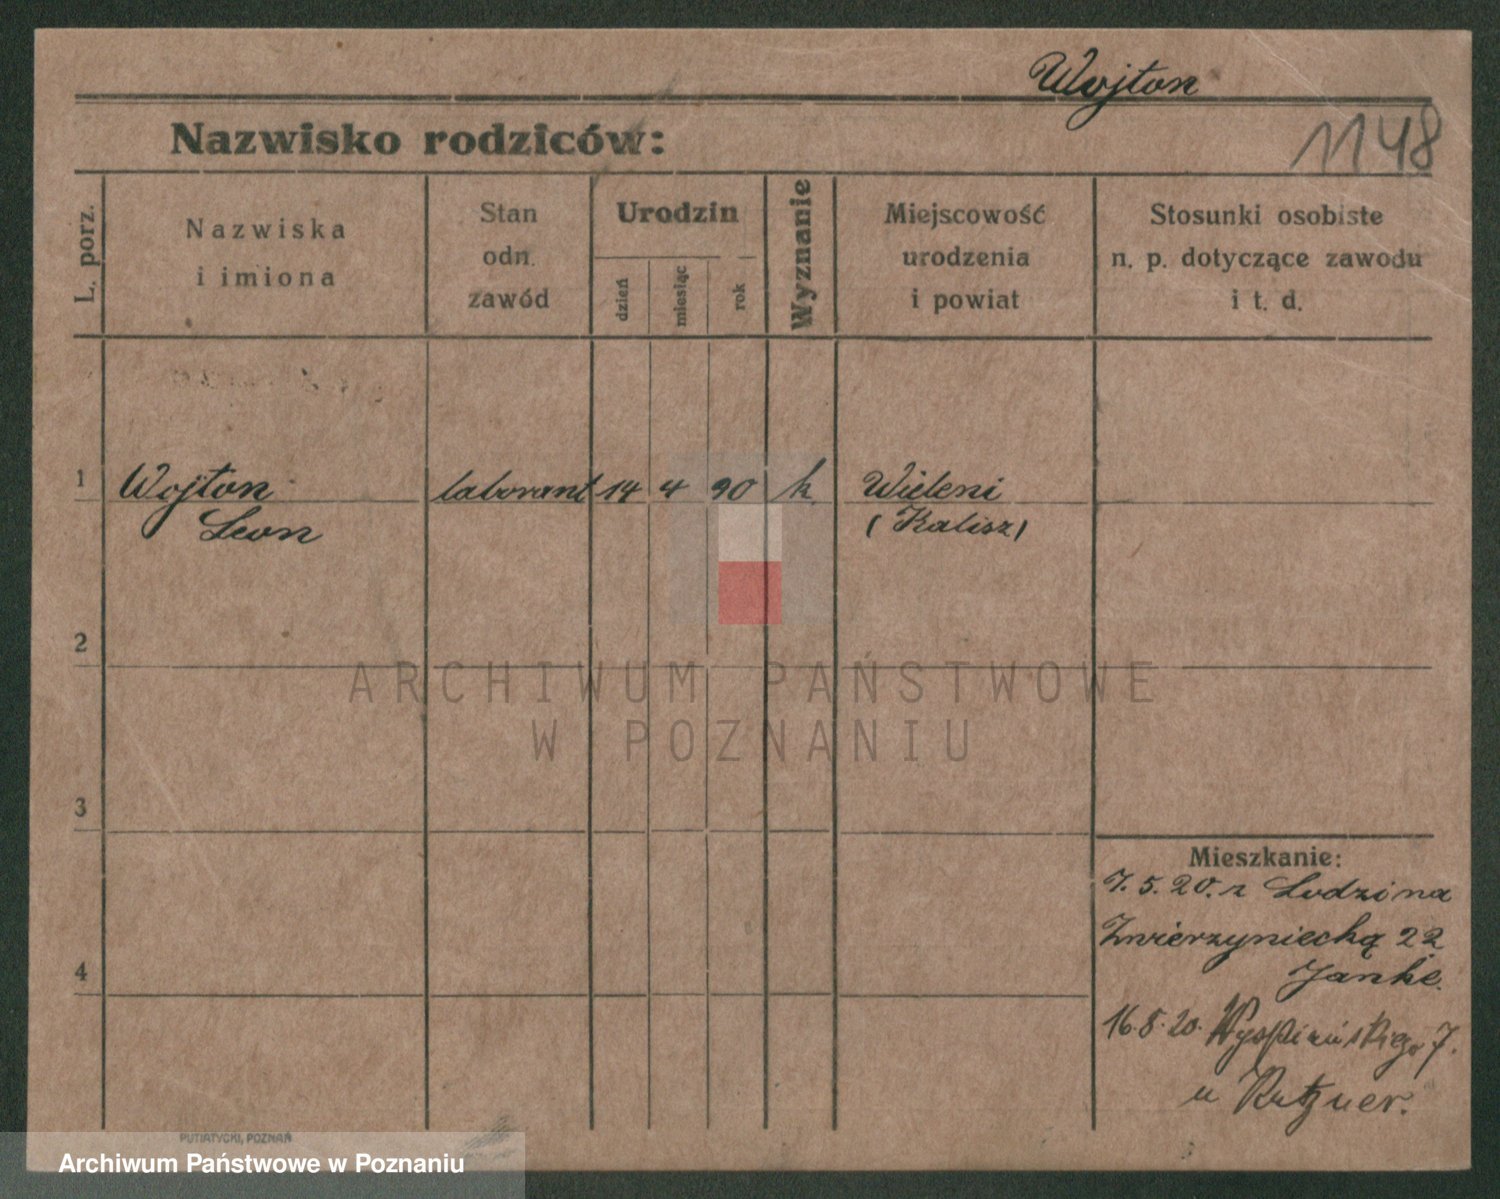 Wojton
Nazwisko rodziców:
1148
L. porz.
Nazwiska
i imiona
Stan
odn.
zawód
Urodzin
dzień
miesiąc
rok
Wyznanie
Miejscowość
urodzenia
i powiat
Stosunki osobiste
n. p. dotyczące zawodu
i t. d.
1 Wojton laborant 14 4 90 k Wieleni
Leon (Kalisz)
2
3
4
Mieszkanie:
7.5.20. z Lodzi na
Zwierzyniecką 22
Janke.
16.8.20. Wyspiańskiego 7.
u
ARCHIWUM PAŃSTWOWE
W POZNANIU
PUTIATYCKI, POZNAŃ
Archiwum Państwowe w Poznaniu